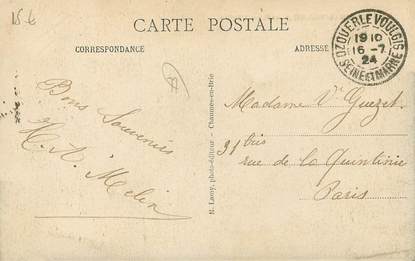 15 €
CARTE POSTALE
CORRESPONDANCE
ADRESSE
OZOUER LE VOULGIS
19 10
16 - 7
24
SEINE ET MARNE
Bons Souvenirs
Madame Vve Guezet
31 bis
rue de la Quintinie
Paris
photo-éditeur - Chaumes-en-Brie